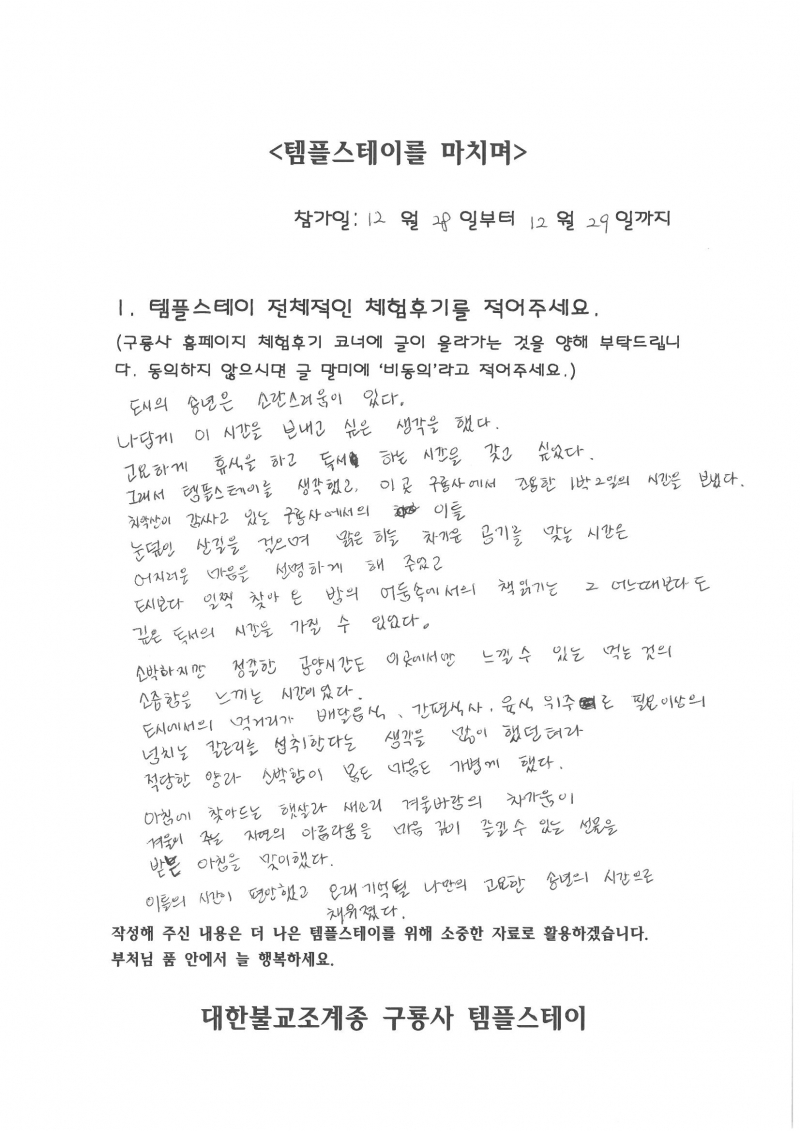 <템플스테이를 마치며>
참가일: 12 월 28 일부터 12 월 29 일까지
1. 템플스테이 전체적인 체험후기를 적어주세요.
(구룡사 홈페이지 체험후기 코너에 글이 올라가는 것을 양해 부탁드립니
다. 동의하지 않으시면 글 말미에 '비동의'라고 적어주세요.)
도시의 송년은 소란스러움이 있다.
나답게 이 시간을 보내고 싶은 생각을 했다.
고요하게 휴식을 하고 독서 하는 시간을 갖고 싶었다.
그래서 템플스테이를 생각했고, 이곳 구룡사에서 조용한 1박2일의 시간을 보냈다.
치악산이 감싸고 있는 구룡사에서의 이틀
눈덮인 산길을 걸으며 맑은 하늘 차가운 공기를 맞는 시간은
어지러운 마음을 선명하게 해 주었고
도시보다 일찍 찾아 온 밤의 어둠속에서의 책읽기는 그 어느때보다도
깊은 독서의 시간을 가질 수 있었다.
소박하지만 정갈한 공양시간도 이곳에서만 느낄 수 있는 먹는 것의
소중함을 느끼는 시간이었다.
도시에서의 먹거리가 배달음식, 간편식사, 육식 위주로 필요이상의
넘치는 칼로리를 섭취한다는 생각을 많이 했던터라
적당한 양과 소박함이 몸도 마음도 가볍게 했다.
아침에 찾아드는 햇살과 새소리 겨울바람의 차가움이
겨울이 주는 자연의 아름다움을 마음 깊이 즐길 수 있는 선물을
받은 아침을 맞이했다.
이틀의 시간이 편안했고 오래 기억될 나만의 고요한 송년의 시간으로
채워졌다.
작성해 주신 내용은 더 나은 템플스테이를 위해 소중한 자료로 활용하겠습니다.
부처님 품 안에서 늘 행복하세요.
대한불교조계종 구룡사 템플스테이